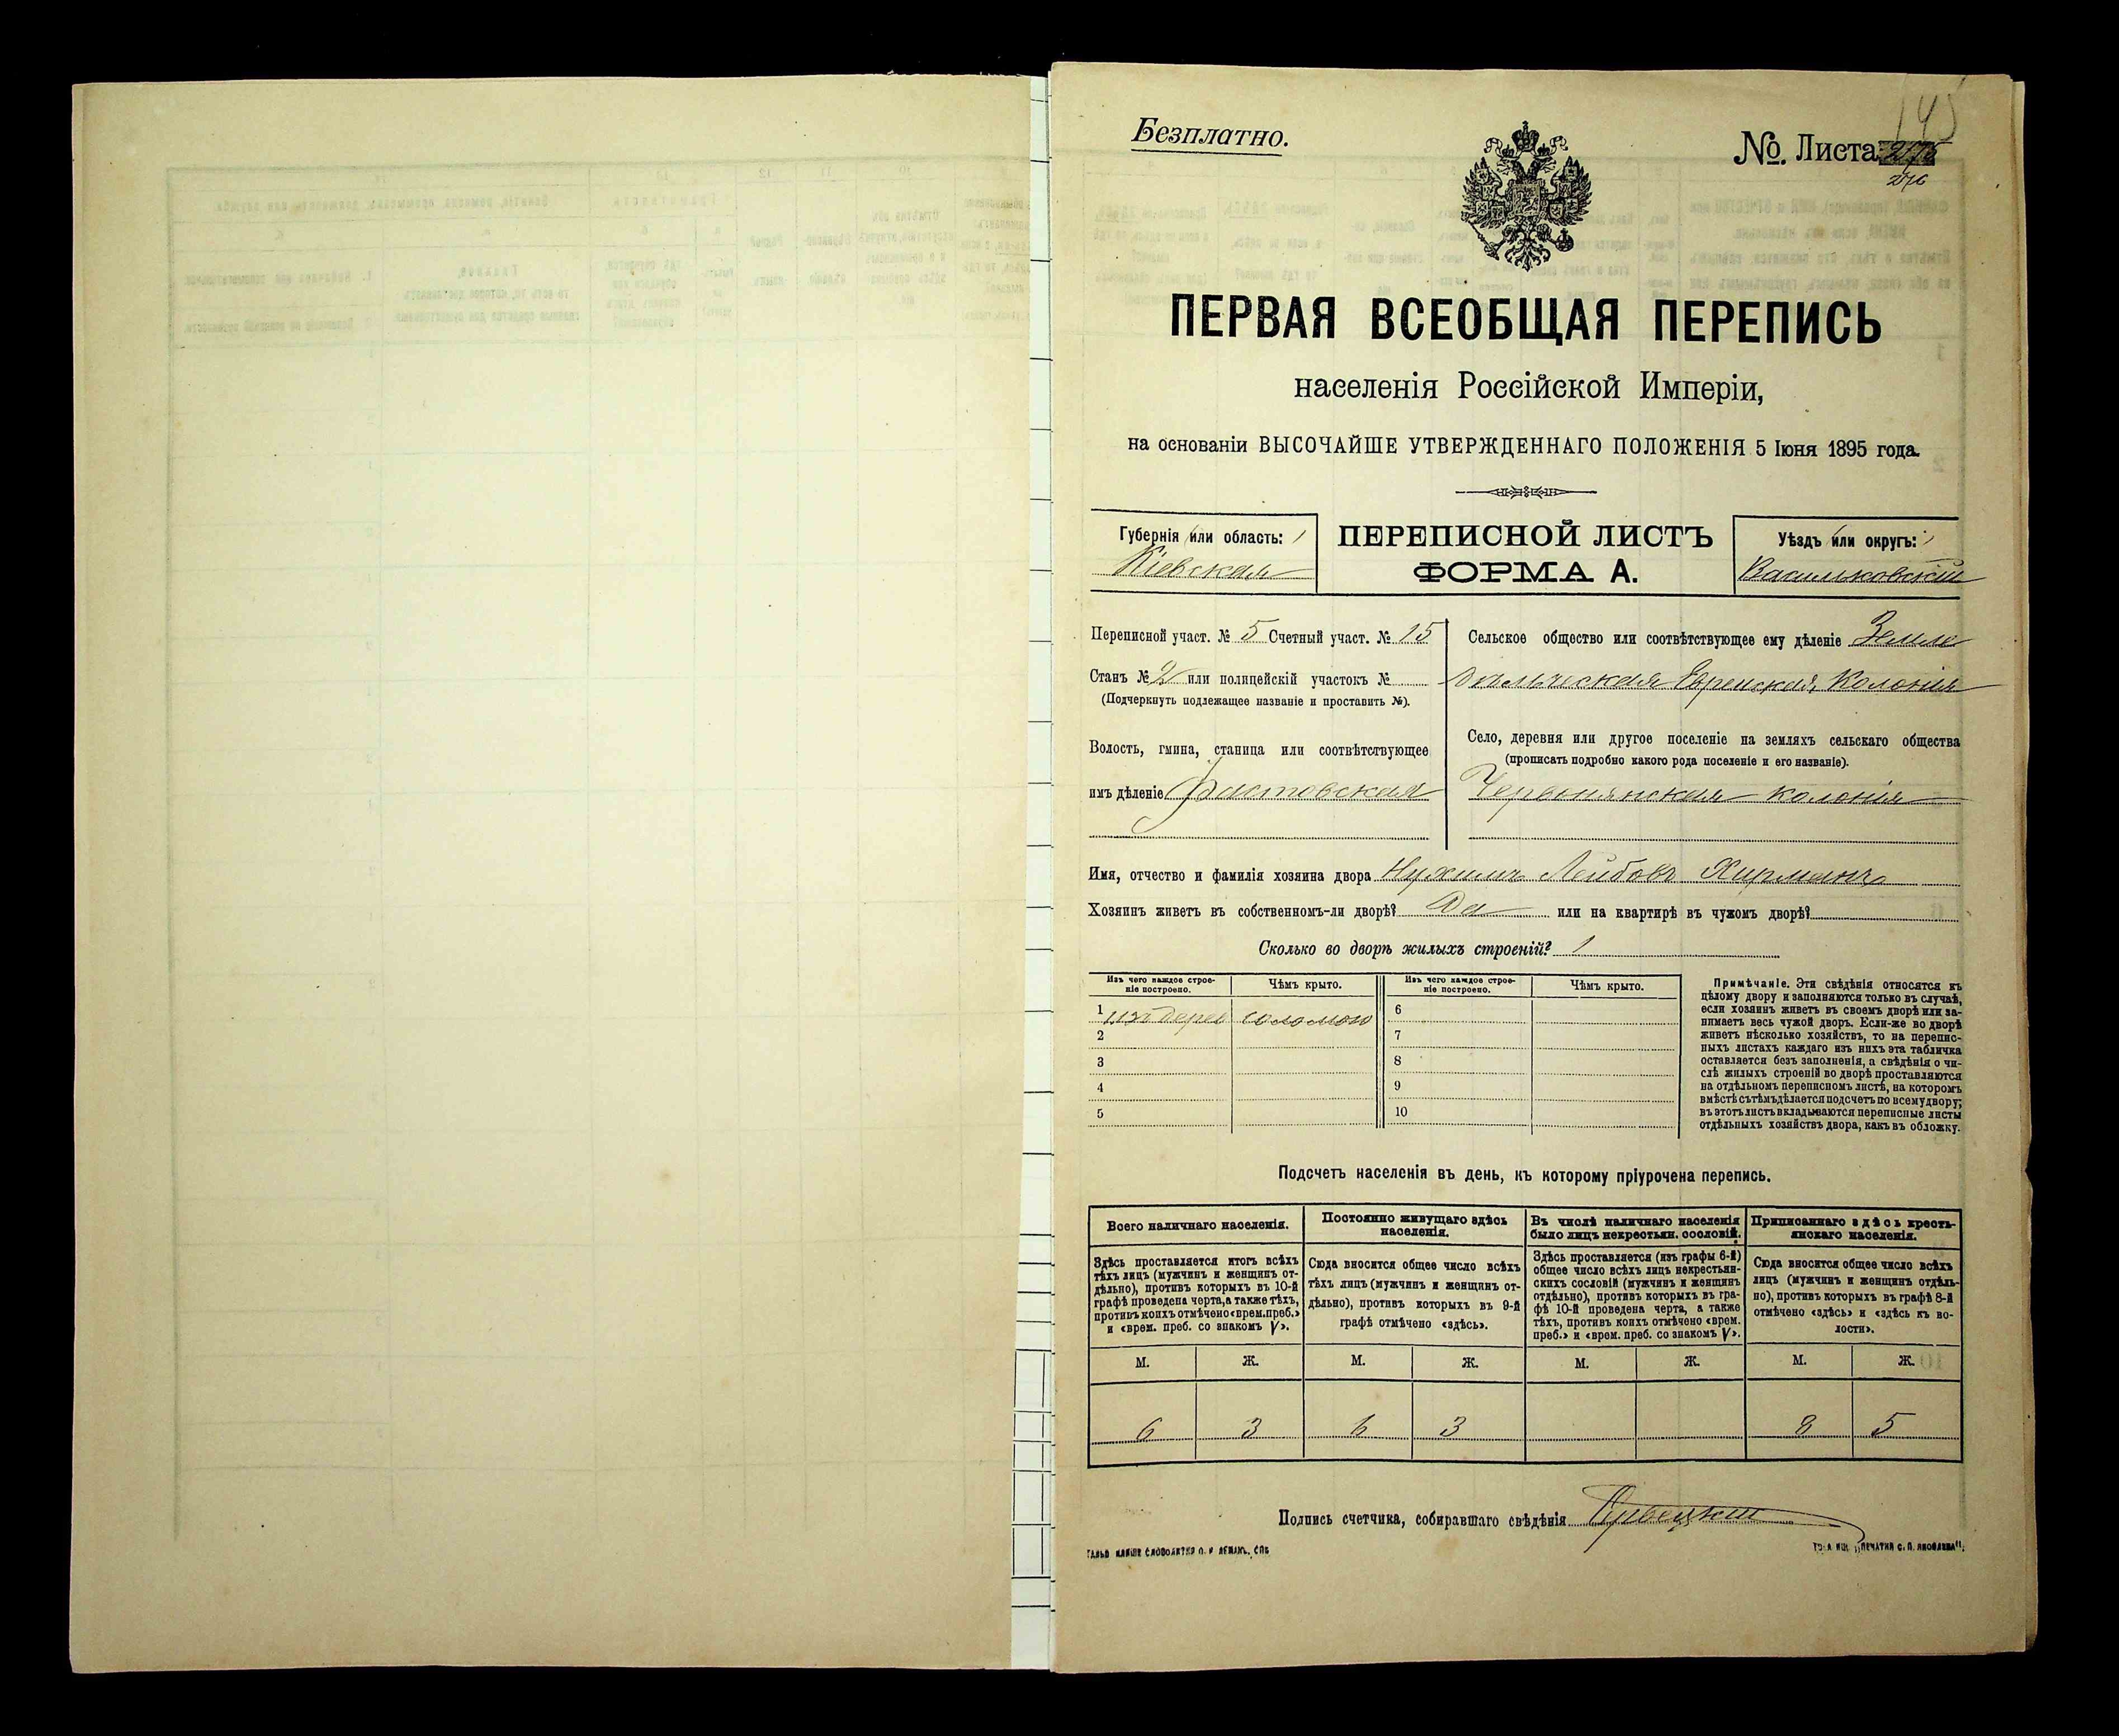 145
Безплатно.
№ Листа 276
ПЕРВАЯ ВСЕОБЩАЯ ПЕРЕПИСЬ
населенія Россійской Имперіи,
на основаніи ВЫСОЧАЙШЕ УТВЕРЖДЕННАГО ПОЛОЖЕНІЯ 5 Іюня 1895 года.
Губернія или область:
Кіевская
ПЕРЕПИСНОЙ ЛИСТЪ
ФОРМА А.
Уѣздъ или округъ:
Васильковскій
Переписной участ. № 5 Счетный участ. № 15
Станъ № 2 или полицейскій участокъ №
(Подчеркнуть подлежащее названіе и проставить №).
Волость, гмина, станица или соотвѣтствующее
имъ дѣленіе Фастовская
Сельское общество или соотвѣтствующее ему дѣленіе Земле
дѣльческая Еврейская Колонія
Село, деревня или другое поселеніе на земляхъ сельскаго общества
(прописать подробно какого рода поселеніе и его названіе).
Червонянская колонія
Имя, отчество и фамилія хозяина двора Нухимъ Лейбовъ Хирманъ
Хозяинъ живетъ въ собственномъ-ли дворѣ? Да или на квартирѣ въ чужомъ дворѣ?
Сколько во дворѣ жилыхъ строеній? 1
Изъ чего каждое строе-
ніе построено.
Чѣмъ крыто.
Изъ чего каждое строе-
ніе построено.
Чѣмъ крыто.
1 изъ дерев соломою 6
2 7
3 8
4 9
5 10
Примѣчаніе. Эти свѣдѣнія относятся къ
цѣлому двору и заполняются только въ случаѣ,
если хозяинъ живетъ въ своемъ дворѣ или за-
нимаетъ весь чужой дворъ. Если-же во дворѣ
живетъ нѣсколько хозяйствъ, то на перепис-
ныхъ листахъ каждаго изъ нихъ эта табличка
оставляется безъ заполненія, а свѣдѣнія о чи-
слѣ жилыхъ строеній во дворѣ проставляются
на отдѣльномъ переписномъ листѣ, на которомъ
вмѣстѣ съ тѣмъ дѣлается подсчетъ по всему двору;
въ этотъ листъ вкладываются переписные листы
отдѣльныхъ хозяйствъ двора, какъ въ обложку.
Подсчетъ населенія въ день, къ которому пріурочена перепись.
Всего наличнаго населенія.
Здѣсь проставляется итогъ всѣхъ
тѣхъ лицъ (мужчинъ и женщинъ от-
дѣльно), противъ которыхъ въ 10-й
графѣ проведена черта, а также тѣхъ,
противъ коихъ отмѣчено «врем. преб.»
и «врем. преб. со знакомъ V».
Постоянно живущаго здѣсь
населенія.
Сюда вносится общее число всѣхъ
тѣхъ лицъ (мужчинъ и женщинъ от-
дѣльно), противъ которыхъ въ 9-й
графѣ отмѣчено «здѣсь».
Въ числѣ наличнаго населенія
было лицъ некрестьян. сословій.
Здѣсь проставляется (изъ графы 6-й)
общее число всѣхъ лицъ некрестьян-
скихъ сословій (мужчинъ и женщинъ
отдѣльно), противъ которыхъ въ гра-
фѣ 10-й проведена черта, а также
тѣхъ, противъ коихъ отмѣчено «врем.
преб.» и «врем. преб. со знакомъ V».
Приписаннаго здѣсь кресть-
янскаго населенія.
Сюда вносится общее число всѣхъ
лицъ (мужчинъ и женщинъ отдѣль-
но), противъ которыхъ въ графѣ 8-й
отмѣчено «здѣсь» и «здѣсь къ во-
лости».
М. Ж. М. Ж. М. Ж. М. Ж.
6 3 6 3 8 5
Подпись счетчика, собиравшаго свѣдѣнія